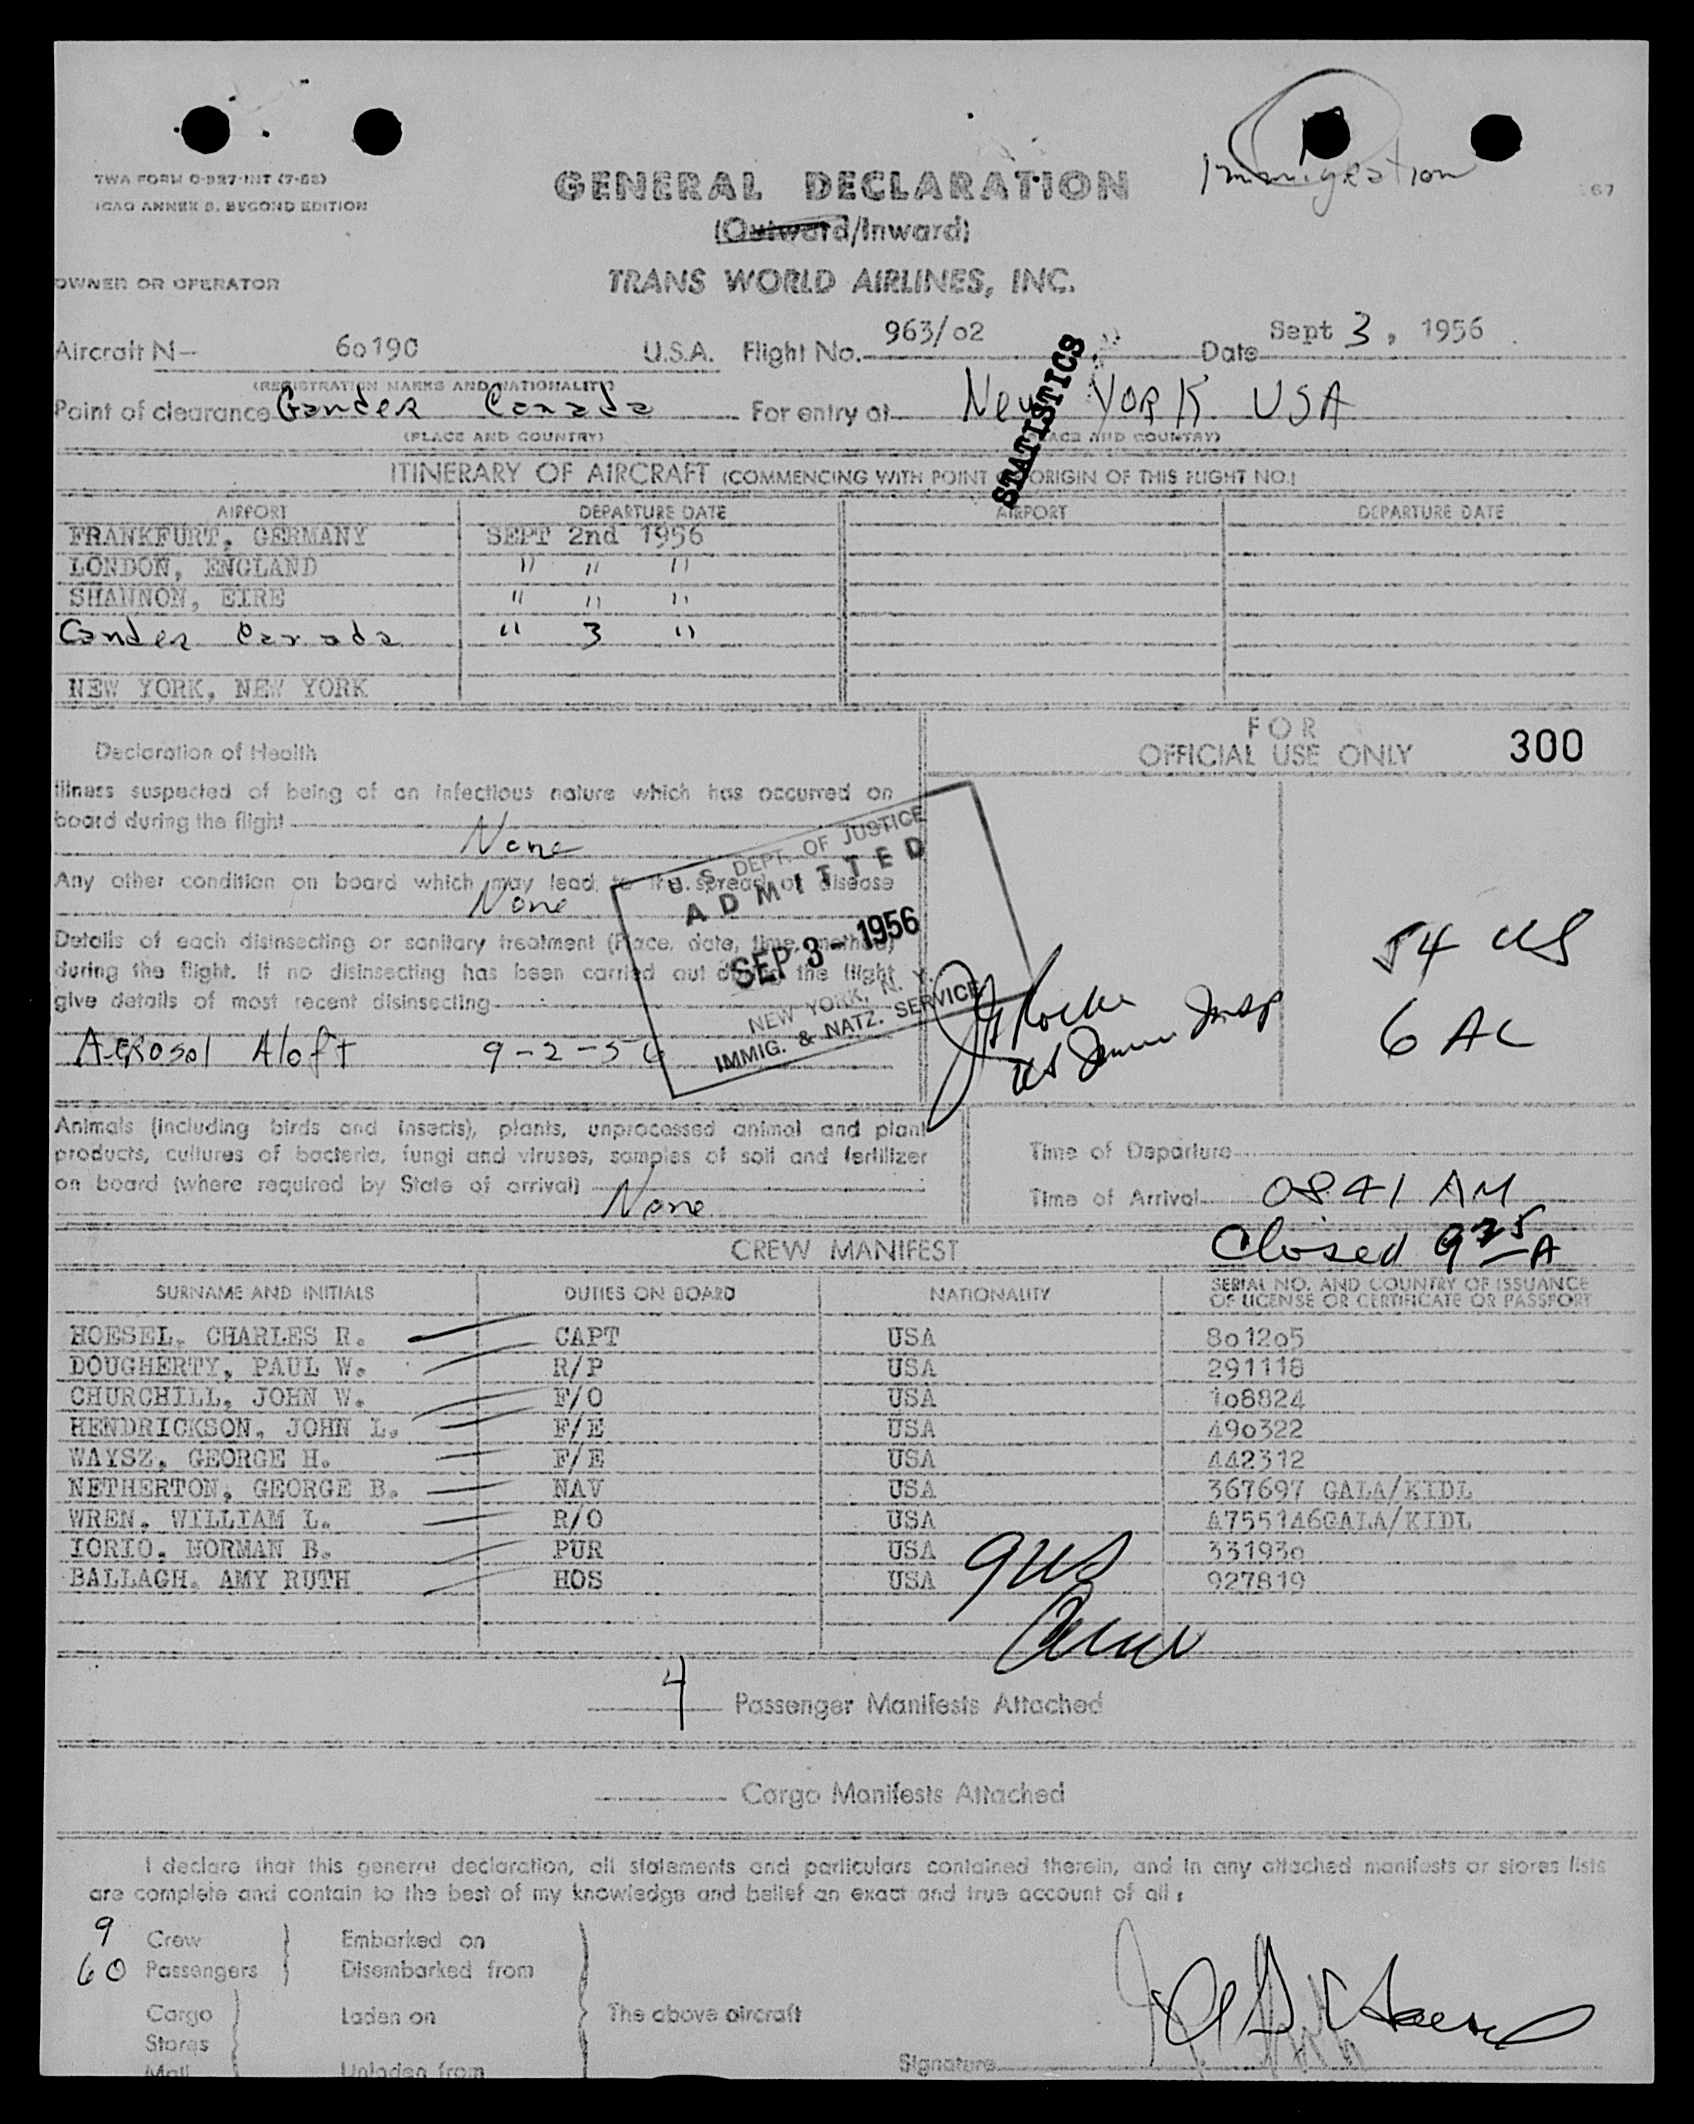 Immigration
TWA FORM O-927-INT (7-52)
ICAO ANNEX 9, SECOND EDITION
GENERAL DECLARATION
67
(Outward/Inward)
OWNER OR OPERATOR
TRANS WORLD AIRLINES, INC.
Aircraft N— 6o190 U.S.A. Flight No. 963/o2 Date Sept 3, 1956
(REGISTRATION MARKS AND NATIONALITY)
Point of clearance Gander Canada For entry at New YORK USA
(PLACE AND COUNTRY) (PLACE AND COUNTRY)
STATISTICS
ITINERARY OF AIRCRAFT (COMMENCING WITH POINT OF ORIGIN OF THIS FLIGHT NO.)
AIRPORT DEPARTURE DATE AIRPORT DEPARTURE DATE
FRANKFURT, GERMANY SEPT 2nd 1956
LONDON, ENGLAND " " "
SHANNON, EIRE " " "
Gander Canada " 3 "
NEW YORK, NEW YORK
FOR
OFFICIAL USE ONLY 300
Declaration of Health
Illness suspected of being of an infectious nature which has occurred on
board during the flight
None
Any other condition on board which may lead to the spread of disease
None
Details of each disinsecting or sanitary treatment (Place, date, time, method)
during the flight. If no disinsecting has been carried out during the flight
give details of most recent disinsecting
Aerosol Aloft 9-2-56
U. S. DEPT. OF JUSTICE
ADMITTED
SEP 3 - 1956
NEW YORK, N. Y.
IMMIG. & NATZ. SERVICE
US Immn Insp
54 US
6 AL
Animals (including birds and insects), plants, unprocessed animal and plant
products, cultures of bacteria, fungi and viruses, samples of soil and fertilizer
on board (where required by State of arrival)
None
Time of Departure
Time of Arrival 0841 AM
Closed 9 25 A
CREW MANIFEST
SURNAME AND INITIALS DUTIES ON BOARD NATIONALITY SERIAL NO. AND COUNTRY OF ISSUANCE
OF LICENSE OR CERTIFICATE OR PASSPORT
HOESEL, CHARLES R. CAPT USA 8o12o5
DOUGHERTY, PAUL W. R/P USA 291118
CHURCHILL, JOHN W. F/O USA 1o8824
HENDRICKSON, JOHN L. F/E USA 49o322
WAYSZ, GEORGE H. F/E USA 442312
NETHERTON, GEORGE B. NAV USA 367697 GALA/KIDL
WREN, WILLIAM L. R/O USA 4755146GALA/KIDL
IORIO, NORMAN B. PUR USA 33193o
BALLAGH, AMY RUTH HOS USA 927819
9 US
4 Passenger Manifests Attached
Cargo Manifests Attached
I declare that this general declaration, all statements and particulars contained therein, and in any attached manifests or stores lists
are complete and contain to the best of my knowledge and belief an exact and true account of all:
9 Crew Embarked on
60 Passengers Disembarked from
Cargo Laden on The above aircraft
Stores
Mail Unladen from
Signature